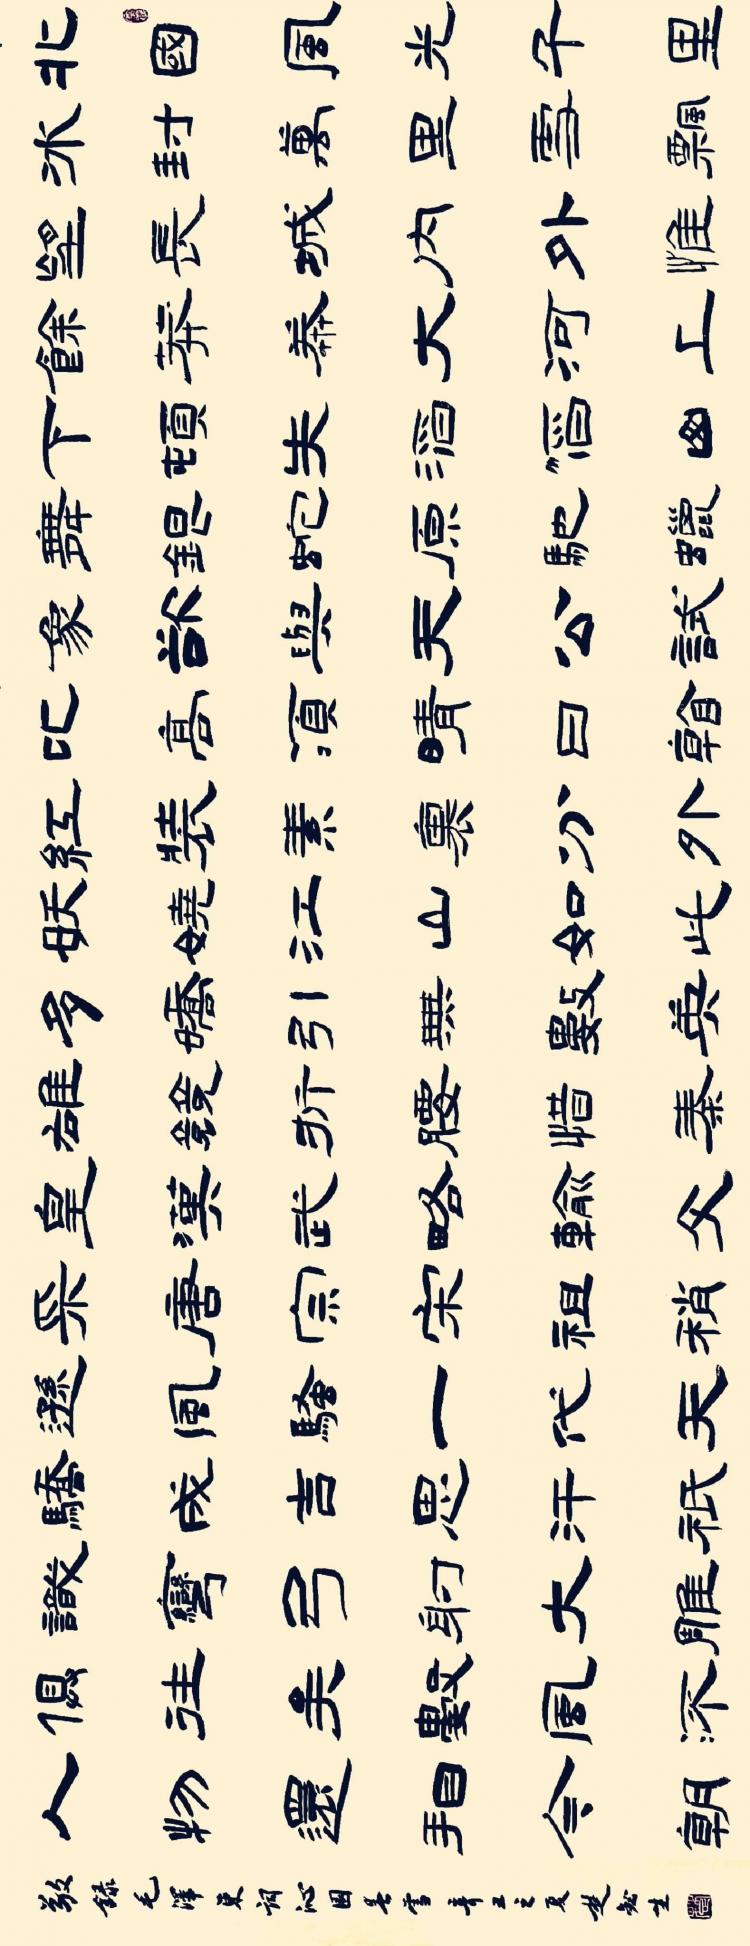 北國風光千里
冰封萬里雪飄
望長城內外惟
餘莽莽大河上
下頓失滔滔山
舞銀蛇原馳蠟
象欲與天公試
比高須晴日看
紅裝素裹分外
妖嬈江山如此
多嬌引無數英
雄競折腰惜秦
皇漢武略輸文
采唐宗宋祖稍
遜風騷一代天
驕成吉思汗祇
識彎弓射大雕
俱往矣數風流
人物還看今朝
敬錄毛澤東詞沁園春雪辛丑之夏楚生